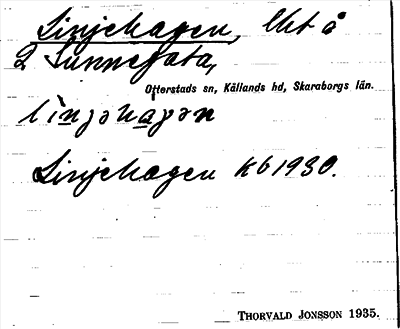 Linjehagen, Uht å
2 Sunnegata,
Otterstads sn, Kållands hd, Skaraborgs län.
Linjehagen kb 1930.
THORVALD JONSSON 1935.